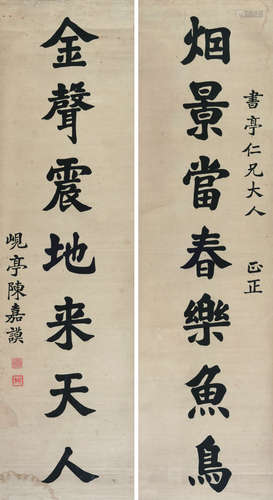 書亭仁兄大人 正正
烟景當春樂魚鳥
金聲震地来天人
峴亭陳嘉謨